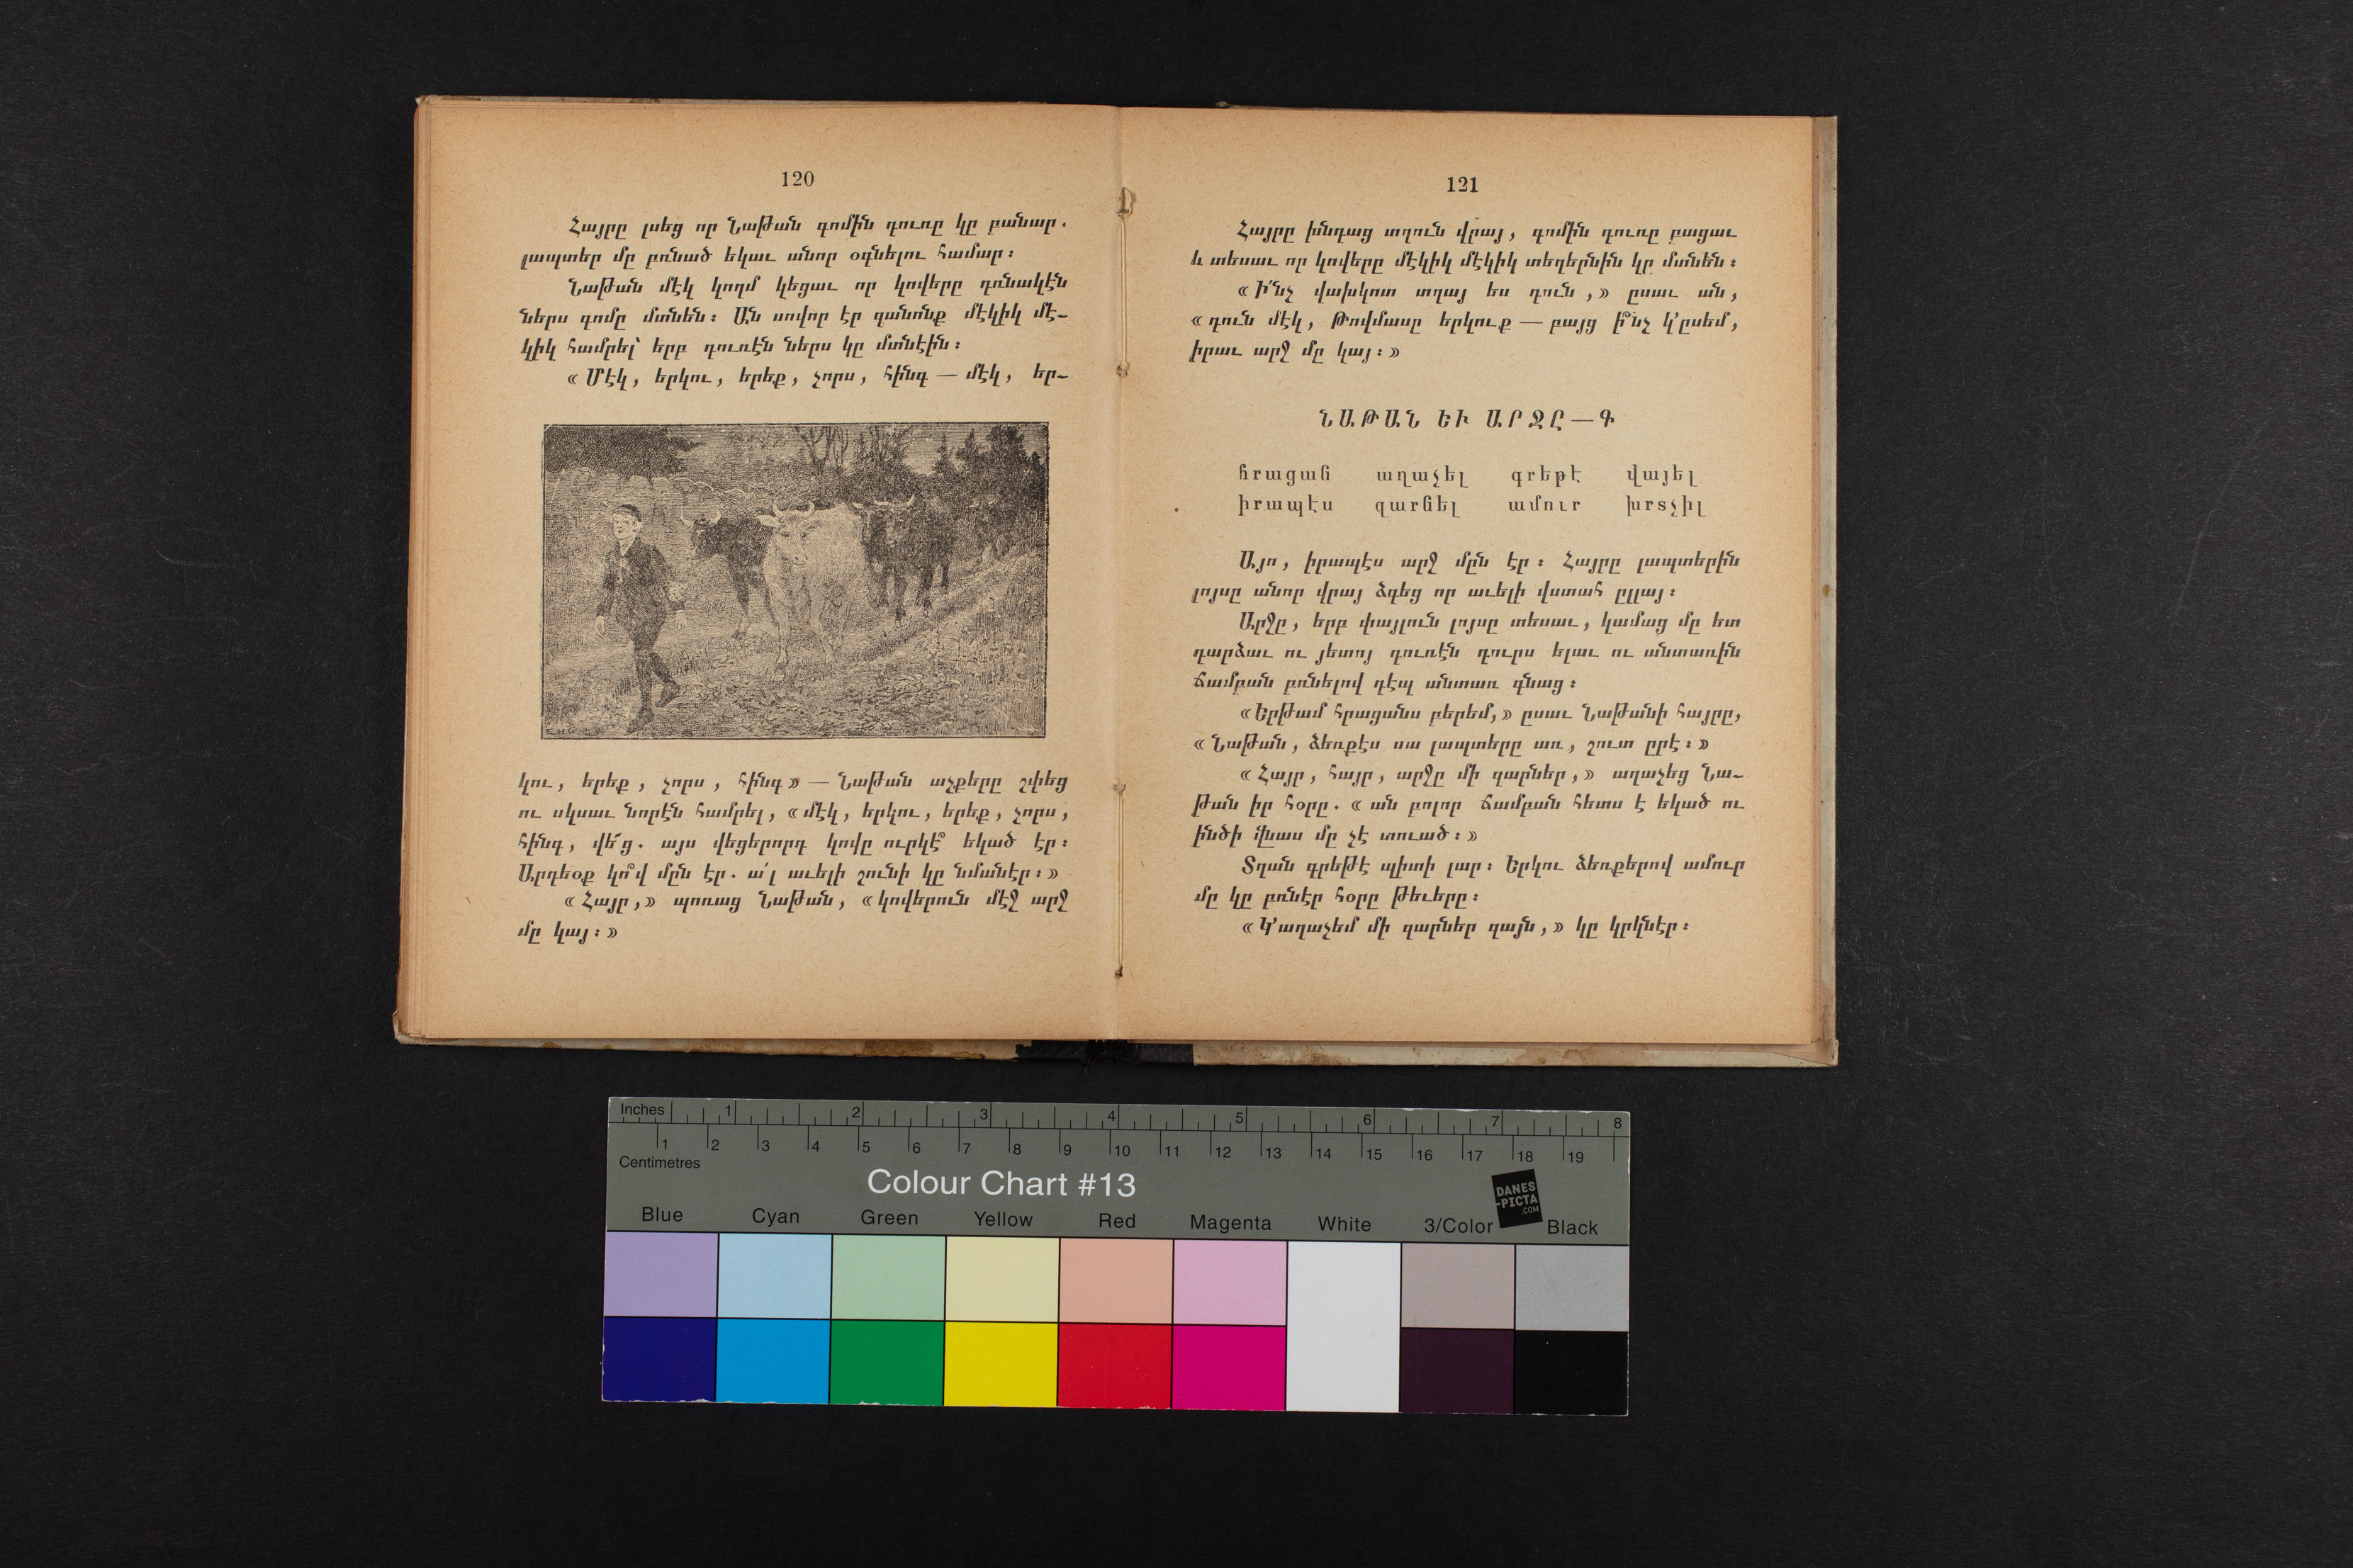 120
Հայրը լսեց որ Նաթան գոմին դուռը կը բանար.
լապտեր մը բռնած եկաւ անոր օգնելու համար։
Նաթան մէկ կողմ կեցաւ որ կովերը դռնակէն
ներս գոմը մտնեն։ Ան սովոր էր զանոնք մէկիկ մէ-
կիկ համրել՝ երբ դուռէն ներս կը մտնէին։
«Մէկ, երկու, երեք, չորս, հինգ — մէկ, եր-
կու, երեք, չորս, հինգ» — Նաթան աչքերը շփեց
ու սկսաւ նորէն համրել, «մէկ, երկու, երեք, չորս,
հինգ, վե՜ց. այս վեցերորդ կովը ուրկէ՞ եկած էր։
Արդեօք կո՞վ մըն էր. ա՛լ աւելի շունի կը նմանէր։»
«Հայր,» պոռաց Նաթան, «կովերուն մէջ արջ
մը կայ։»
121
Հայրը խնդաց տղուն վրայ, գոմին դուռը բացաւ
և տեսաւ որ կովերը մէկիկ մէկիկ տեղերնին կը մտնեն։
«Ի՛նչ վախկոտ տղայ ես դուն,» ըսաւ ան,
«դուն մէկ, Թովմասը երկուք — բայց ի՞նչ կ՚ըսեմ,
իրաւ արջ մը կայ։»
ՆԱԹԱՆ ԵՒ ԱՐՋԸ — Գ
հրացան աղաչել գրեթէ վայել
իրապէս զարնել ամուր խրտչիլ
Այո, իրապէս արջ մըն էր։ Հայրը լապտերին
լոյսը անոր վրայ ձգեց որ աւելի վստահ ըլլայ։
Արջը, երբ փայլուն լոյսը տեսաւ, կամաց մը ետ
դարձաւ ու յետոյ դուռէն դուրս ելաւ ու անտառին
ճամբան բռնելով դէպ անտառ գնաց։
«Երթամ հրացանս բերեմ,» ըսաւ Նաթանի հայրը,
«Նաթան, ձեռքէս սա լապտերը առ, շուտ ըրէ։»
«Հայր, հայր, արջը մի զարներ,» աղաչեց Նա-
թան իր հօրը. «ան բոլոր ճամբան հետս է եկած ու
ինծի վնաս մը չէ տուած։»
Տղան գրեթէ պիտի լար։ Երկու ձեռքերով ամուր
մը կը բռնէր հօրը թեւերը։
«Կ՚աղաչեմ մի զարներ զայն,» կը կրկնէր։
Inches 1 2 3 4 5 6 7 8
1 2 3 4 5 6 7 8 9 10 11 12 13 14 15 16 17 18 19
Centimetres
Colour Chart #13
DANES
-PICTA
.COM
Blue Cyan Green Yellow Red Magenta White 3/Color Black